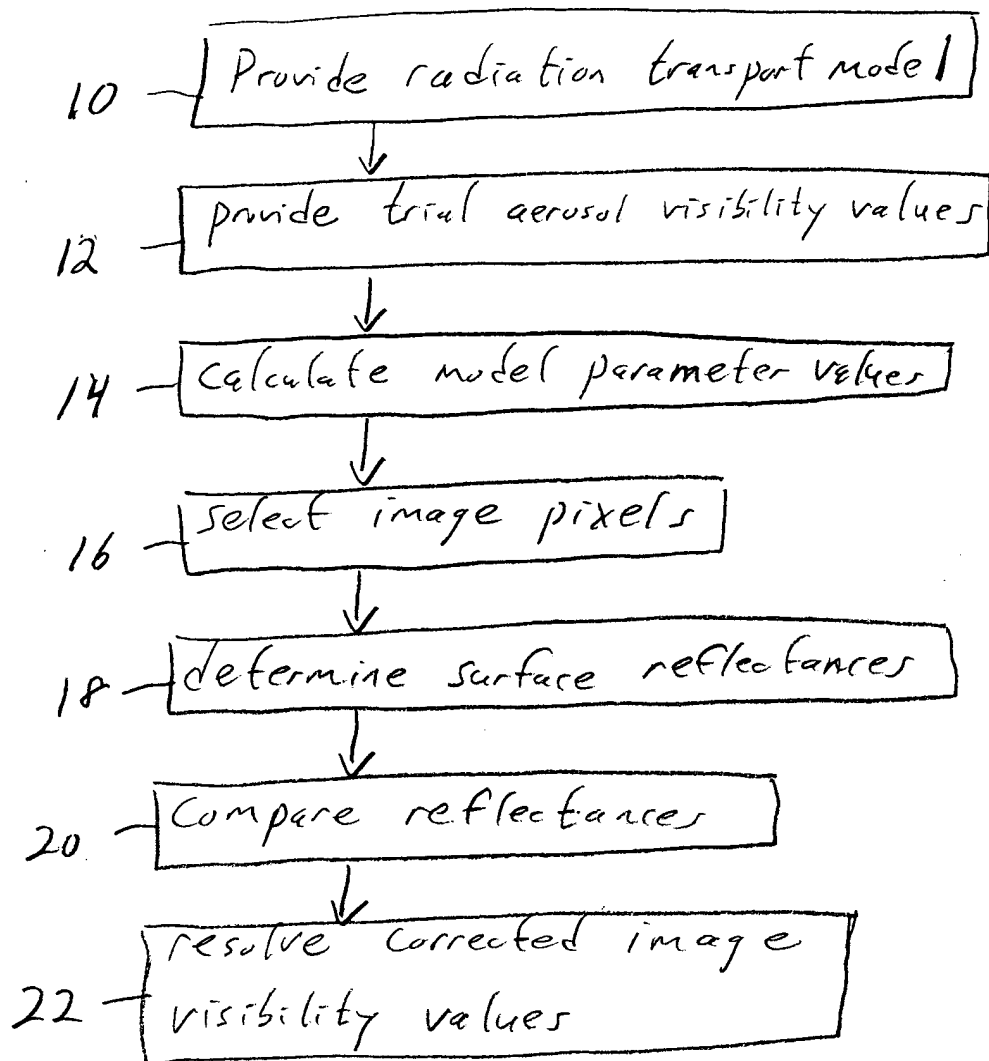 10 Provide radiation transport model
12 provide trial aerosol visibility values
14 calculate model parameter values
16 select image pixels
18 determine surface reflectances
20 compare reflectances
resolve corrected image
22 visibility values